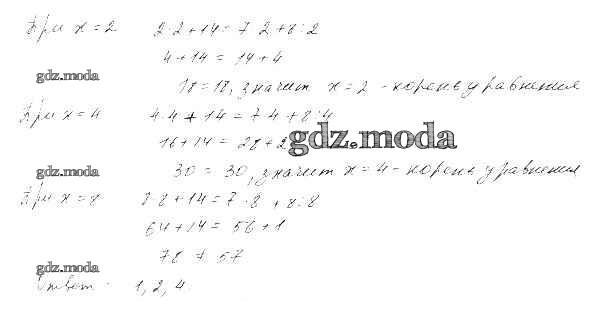 При x = 2 2·2+14=7·2+8:2
4+14 = 14+4
gdz.moda
18=18, значит x=2 - корень уравнения
При x=4 4·4+14=7·4+8:4
16+14 = 28+2
gdz.moda
gdz.moda
30 = 30, значит x=4 - корень уравнения
При x=8 8·8+14=7·8+8:8
64+14=56+1
78 ≠ 57
gdz.moda
Ответ: 1, 2, 4